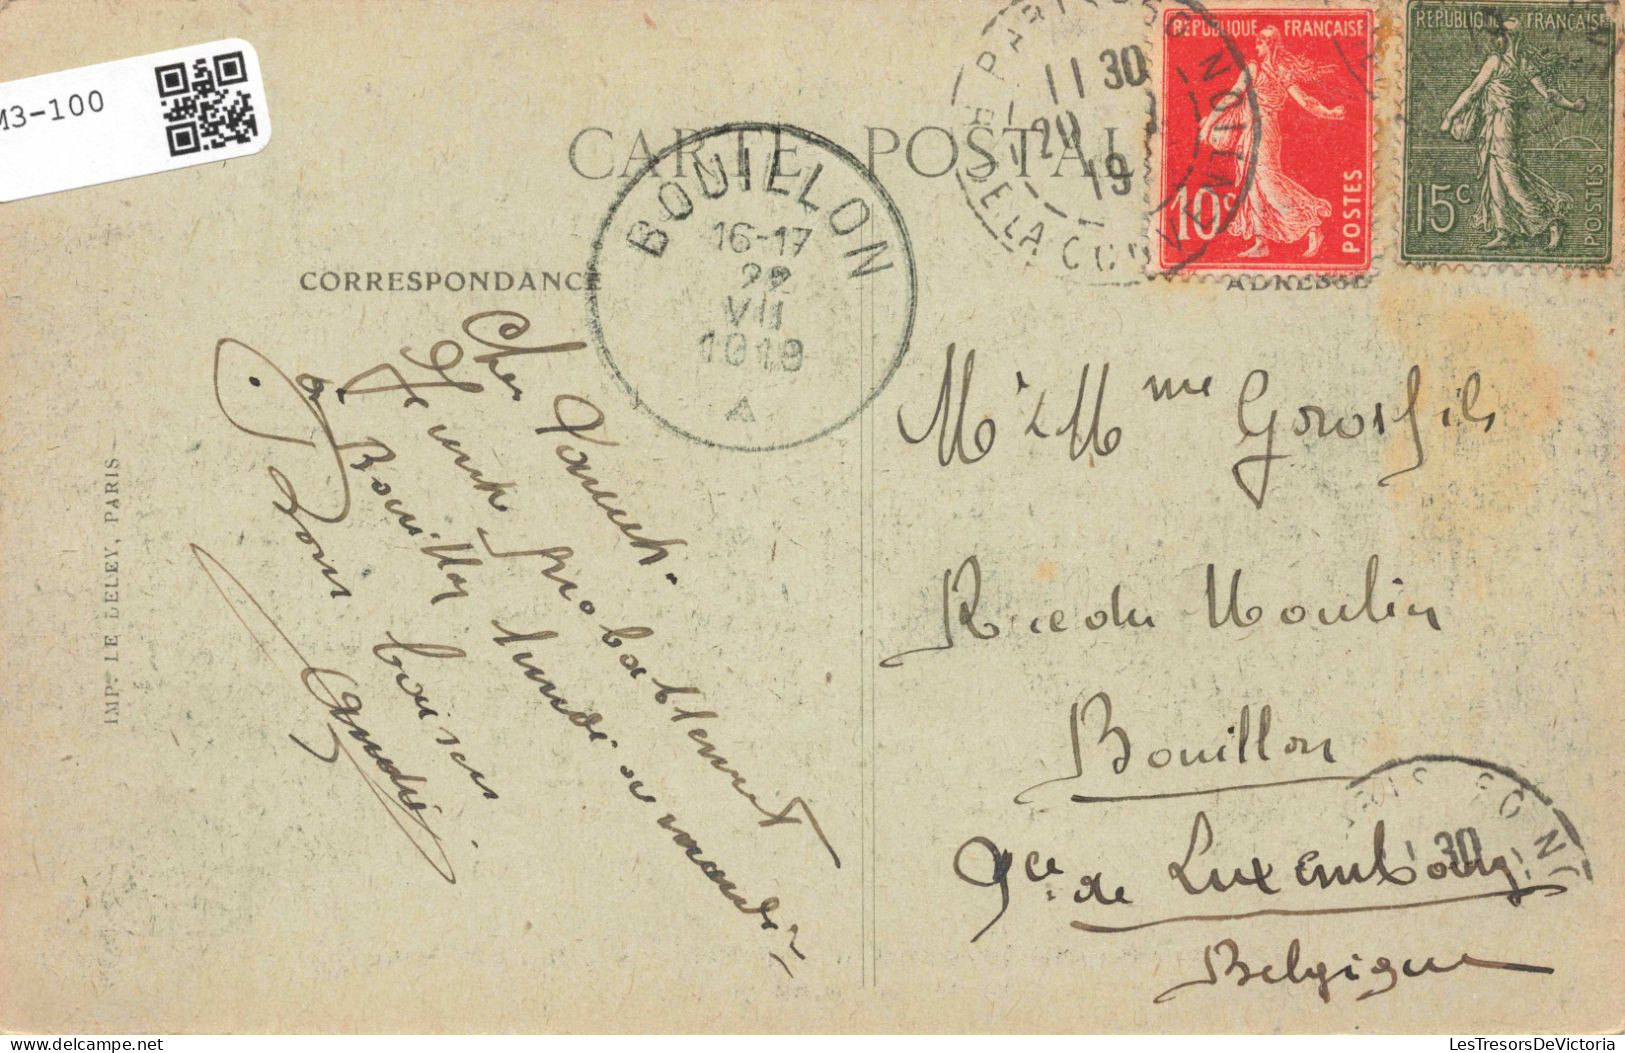 M3-100
CARTE POSTAL
CORRESPONDANCE
ADRESSE
BOUILLON
16-17
22
VII
1919
A
11 30
20
19
DE LA CONVENTION
REPUBLIQUE FRANÇAISE
10c
POSTES
REPUBLIQUE FRANÇAISE
15c
POSTES
Cher Parents.
Je serai probablement
à Bouillon lundi ou mardi
Bons baisers
IMP. LE DELEY, PARIS
Mr & Mme Grosfils
Rue du Moulin
Bouillon
Pce de Luxembourg
Belgique
30
LesTresorsDeVictoria
delcampe.net